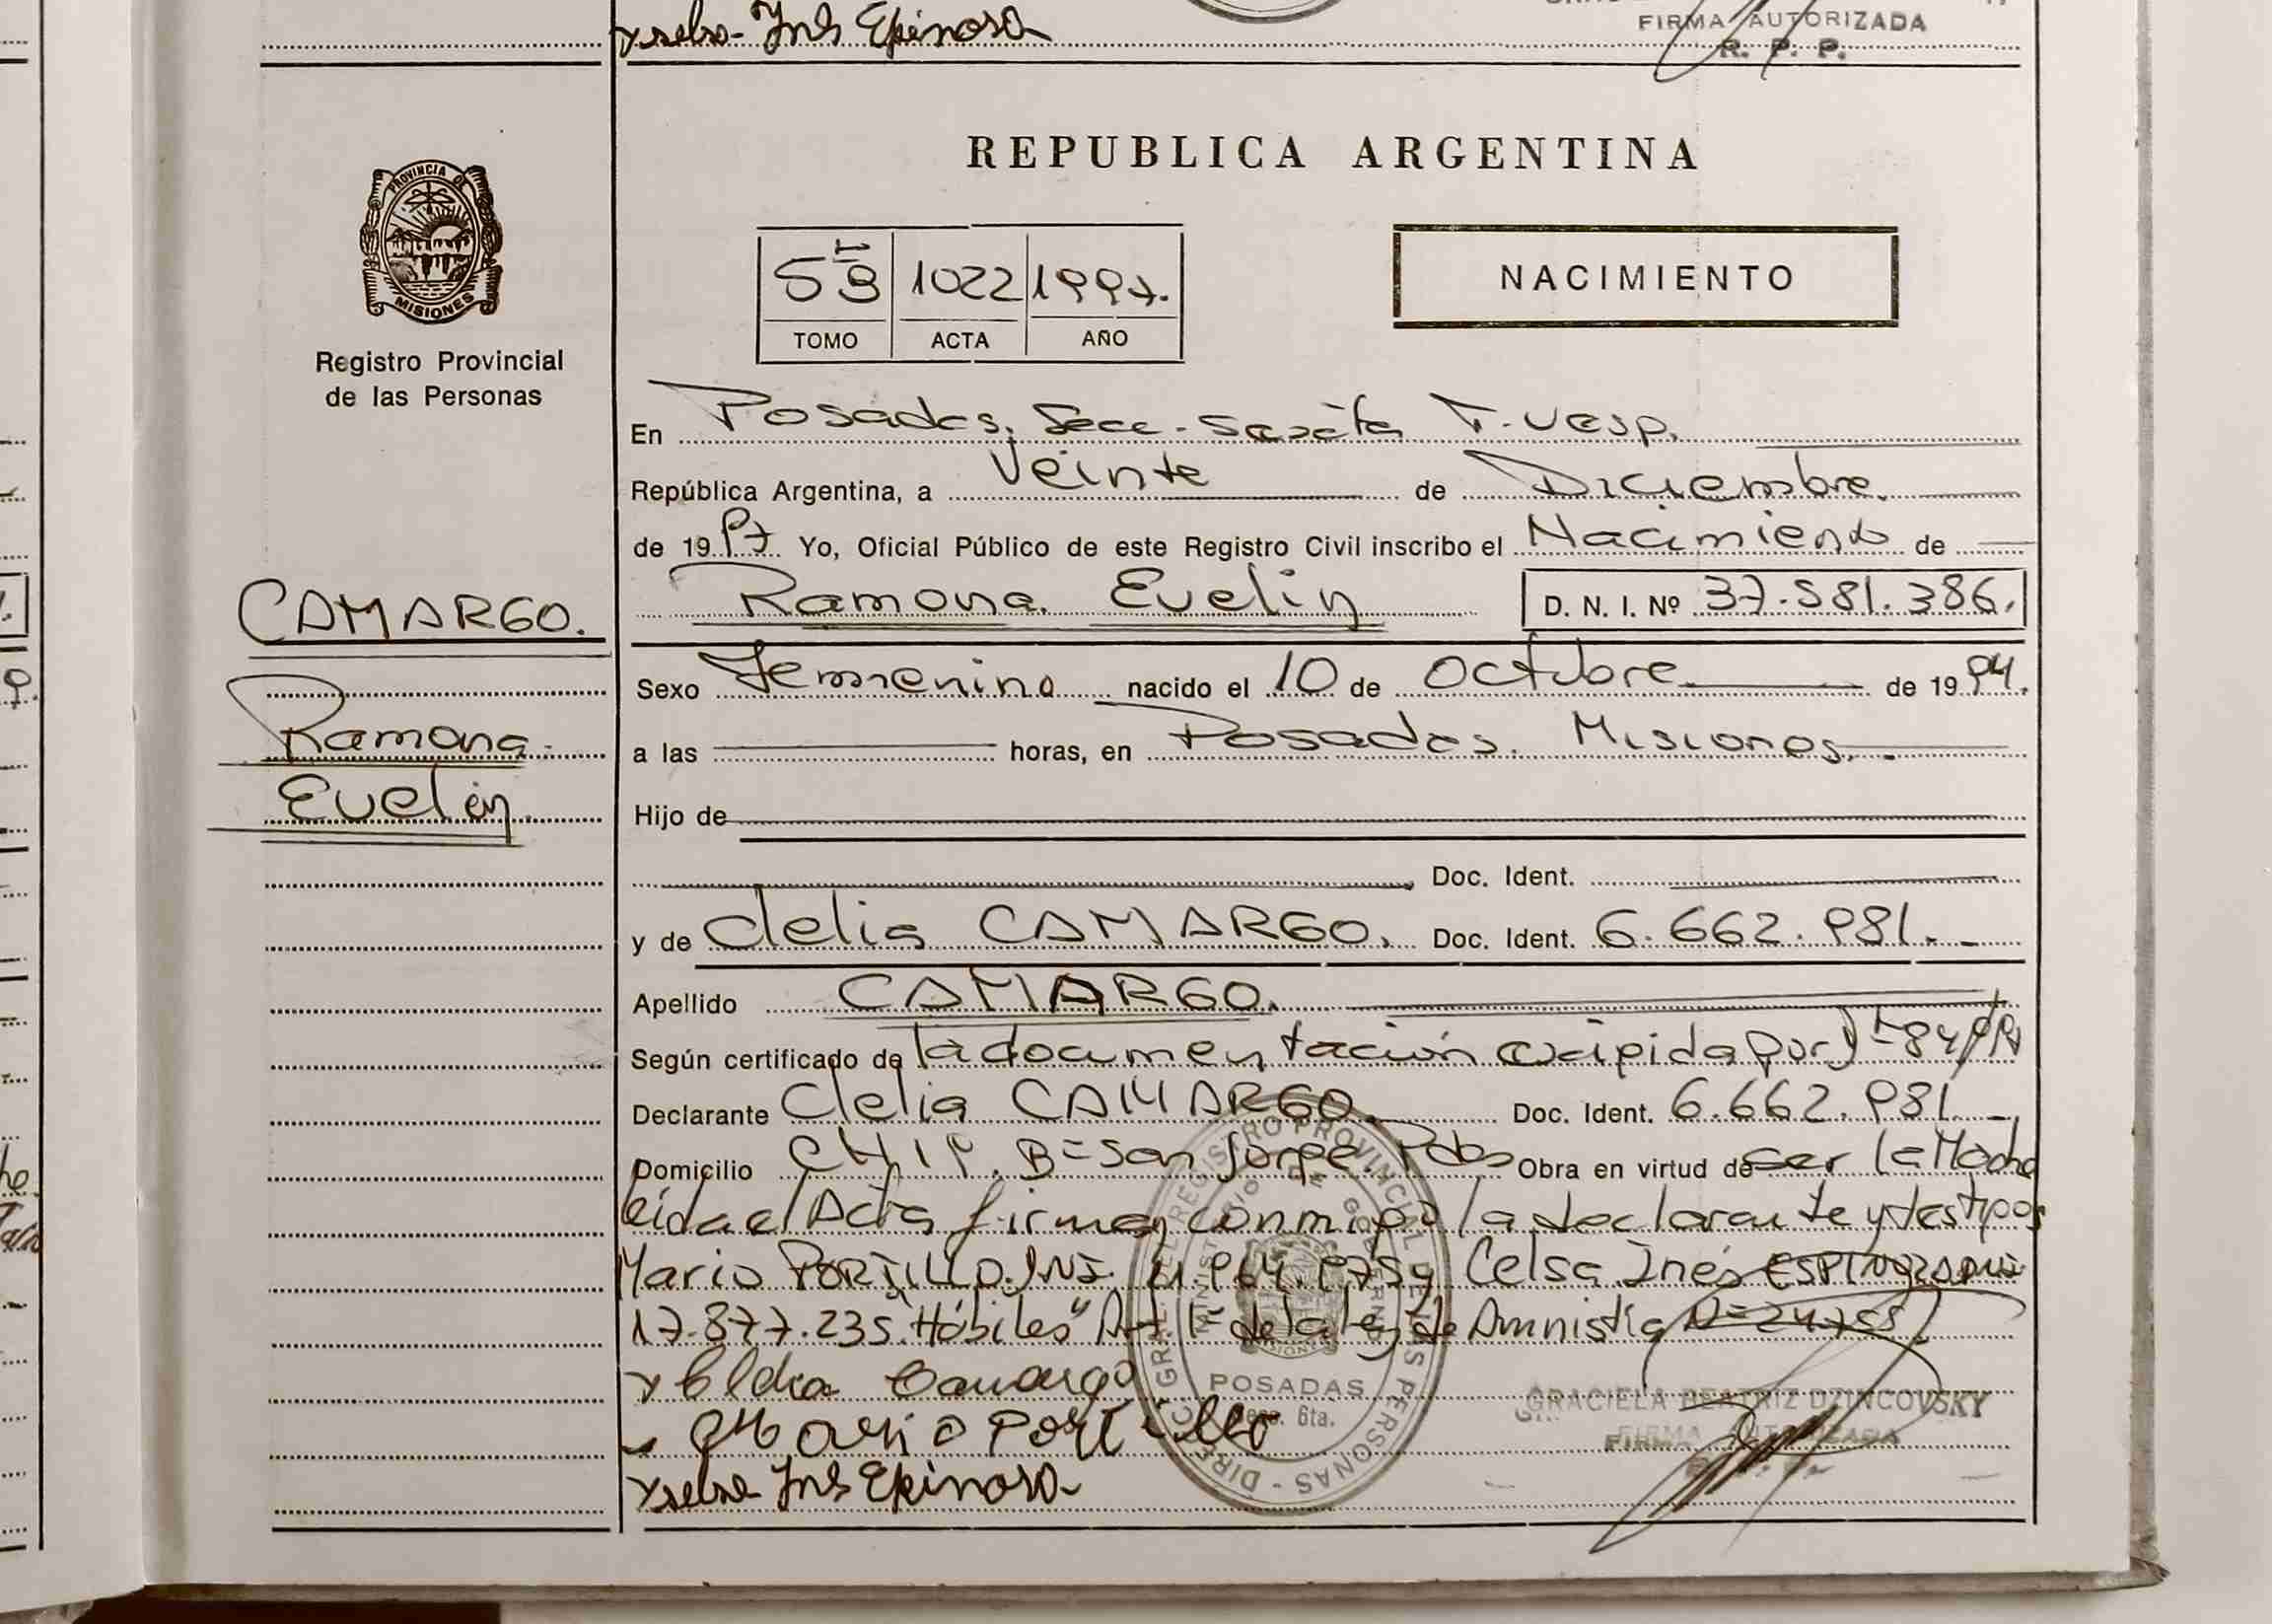 Inés Epinosa
FIRMA AUTORIZADA
R. P. P.
REPUBLICA ARGENTINA
PROVINCIA DE
MISIONES
Registro Provincial
de las Personas
1
53 1022 1997.
TOMO ACTA AÑO
NACIMIENTO
En Posadas, Secc. Sexta T. Vesp.
República Argentina, a Veinte de Diciembre
de 1997 Yo, Oficial Público de este Registro Civil inscribo el Nacimiento de
Ramona Evelin D. N. I. Nº 37.581.386.
CAMARGO.
Ramona
Evelin
Sexo Femenino nacido el 10 de Octubre de 1994.
a las horas, en Posadas. Misiones.
Hijo de
Doc. Ident.
y de Clelia CAMARGO. Doc. Ident. 6.662.981.
Apellido CAMARGO.
Según certificado de la documentación
Declarante Clelia CAMARGO. Doc. Ident. 6.662.981.
Domicilio CH 19. Bº San Jorge. Pdas Obra en virtud de ser la Madre
leida el Acta firman conmigo la declarante y testigos
Mario PORTILLO. DNI y Celsa Inés ESPINOZA DNI
17.877.235. "Hábiles" Art 1º de la ley de Amnistia Nº 24755
Camargo
Mario Portillo
Inés Epinosa
DIREC. GRAL. DEL REGISTRO PROVINCIAL DE LAS PERSONAS
MINISTERIO DE GOBIERNO
MISIONES
POSADAS
Secc. 6ta.
GRACIELA BEATRIZ DZINCOVSKY
FIRMA AUTORIZADA